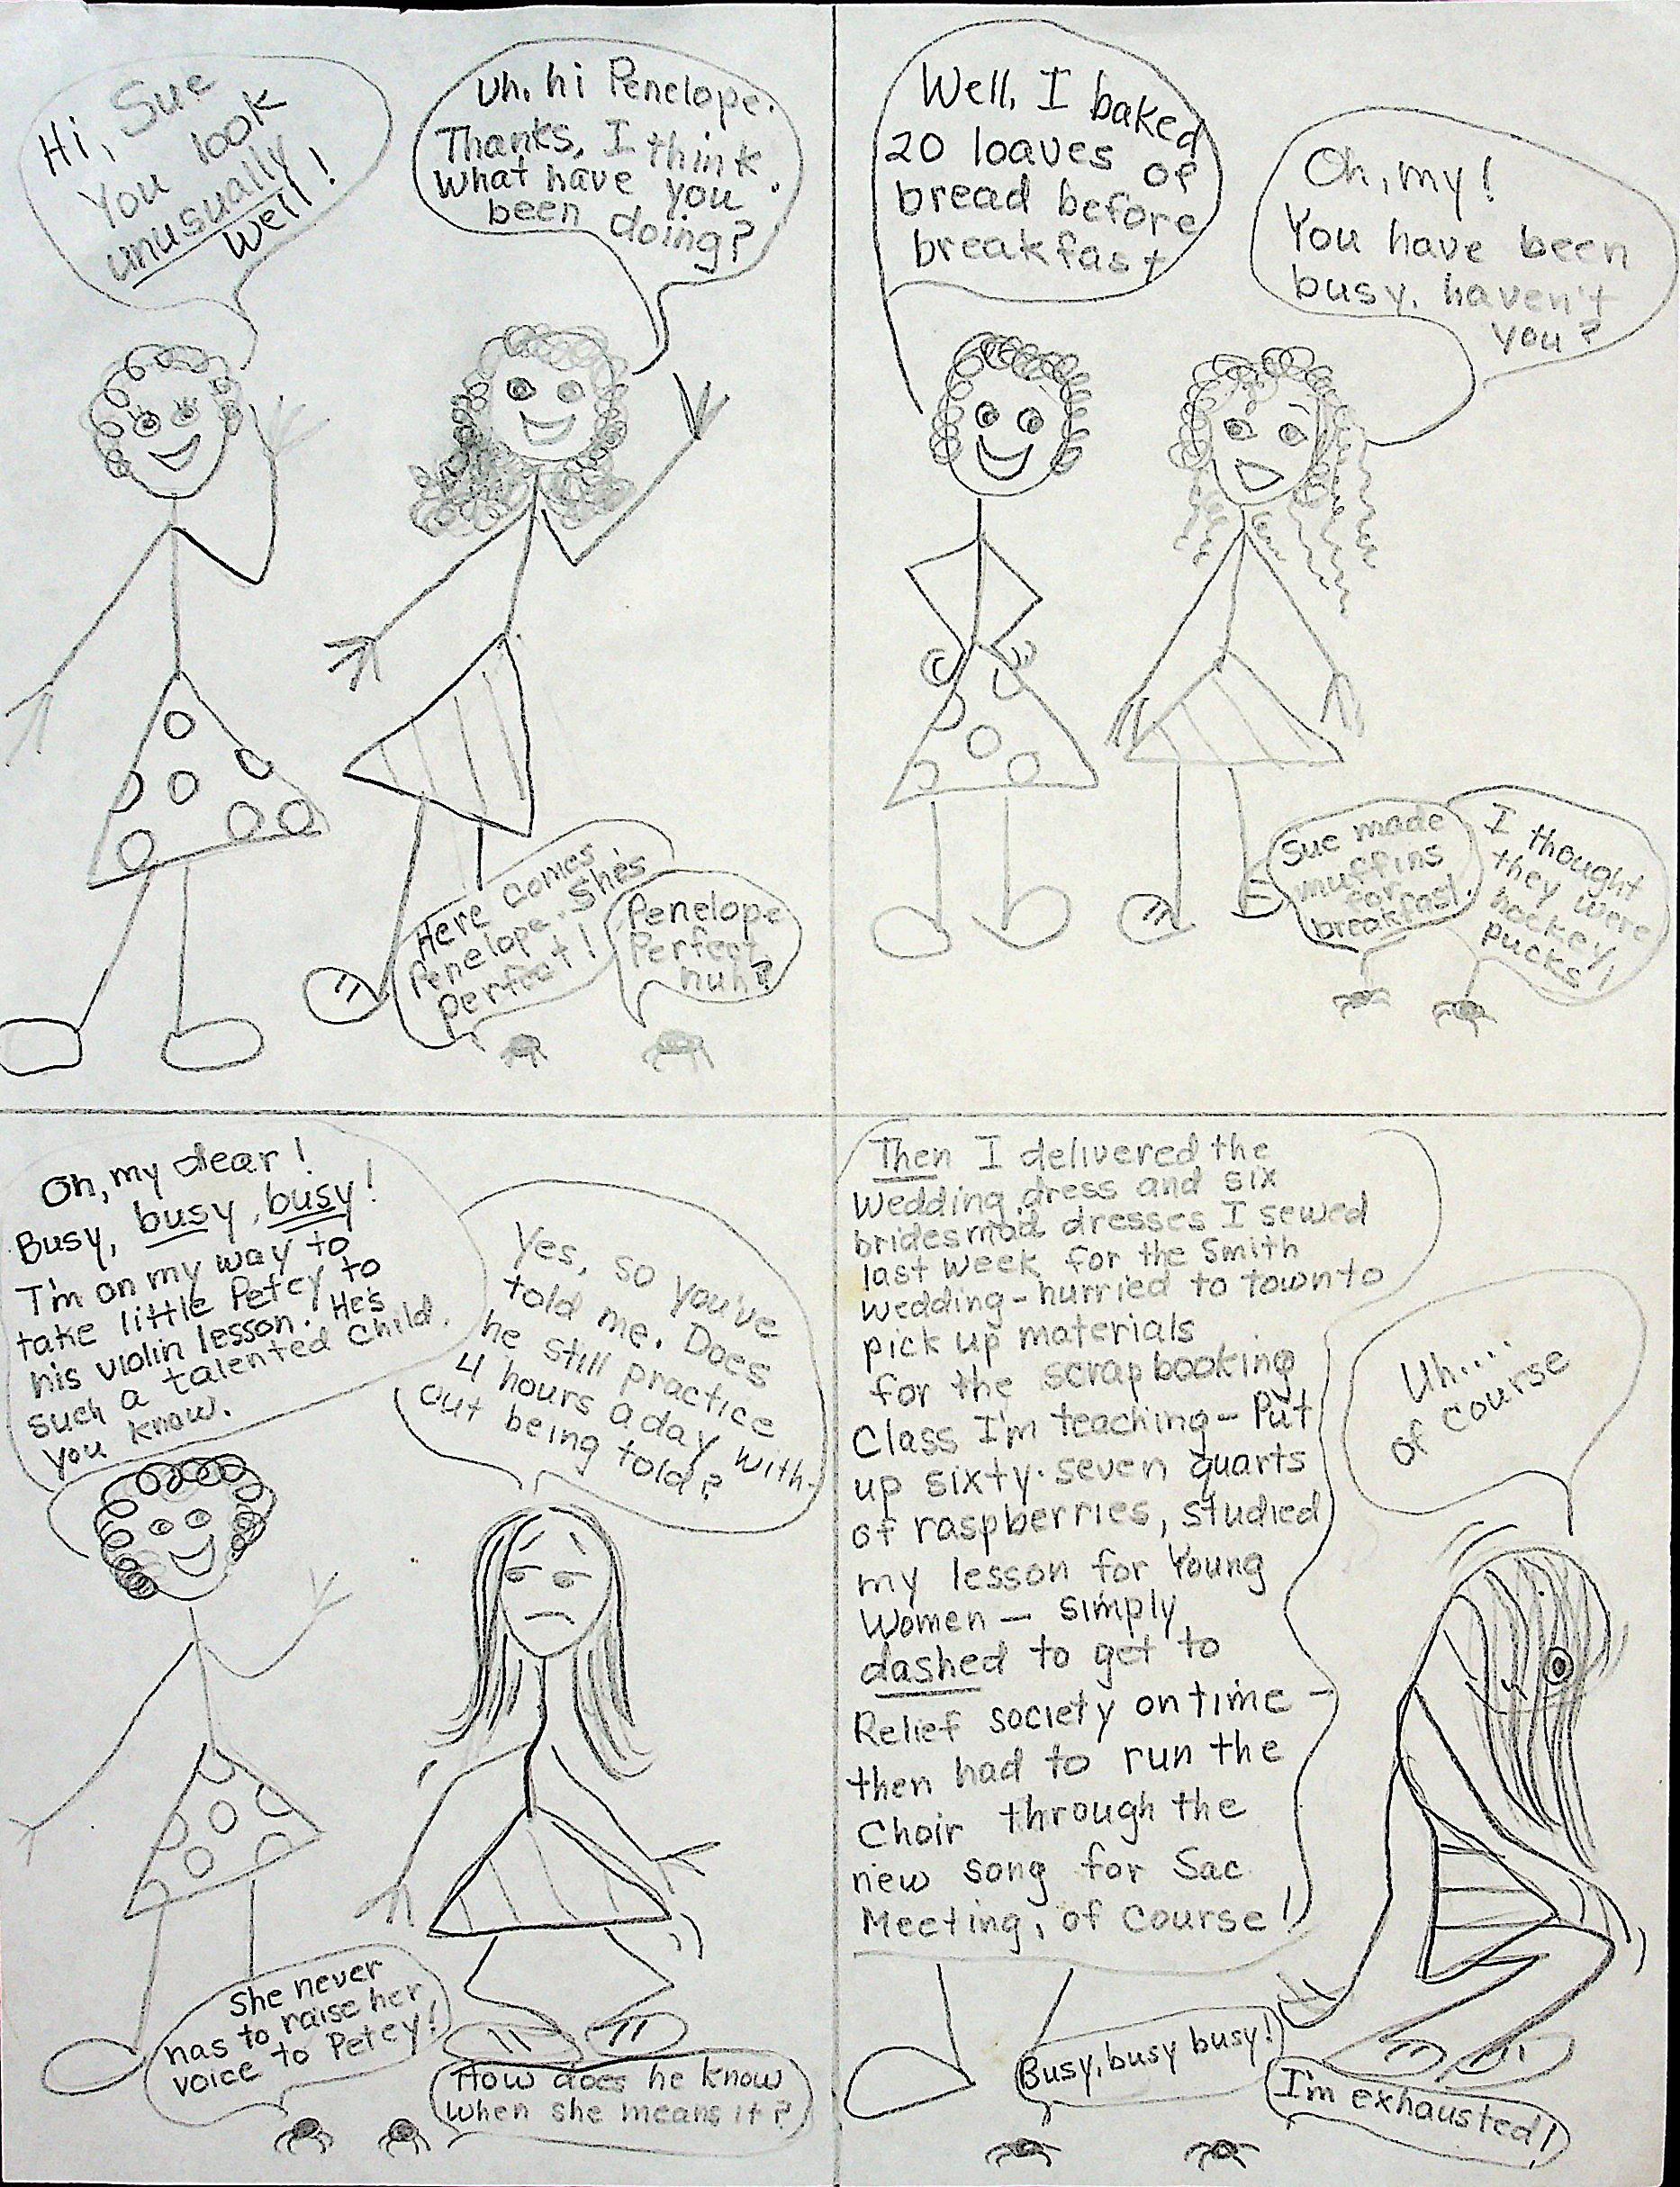 Hi, Sue
You look
unusually
well!
Uh, hi Penelope.
Thanks, I think.
What have you
been doing?
Here comes
Penelope. She's
Penelope
perfect!
Penelope
Perfect
huh?
Well, I baked
20 loaves of
bread before
breakfast
Oh, my!
You have been
busy, haven't
you?
Sue made
muffins
for
breakfast.
I thought
they were
hockey
pucks!
Oh, my dear!
Busy, busy, busy!
I'm on my way to
take little Petey to
his violin lesson. He's
such a talented child,
you know.
Yes, so you've
told me. Does
he still practice
4 hours a day with-
out being told?
She never
has to raise her
voice to Petey!
How does he know
when she means it?
Then I delivered the
wedding dress and six
bridesmad dresses I sewed
last week for the Smith
wedding - hurried to town to
pick up materials
for the scrapbooking
class I'm teaching - Put
up sixty-seven quarts
of raspberries, studied
my lesson for Young
Women - simply
dashed to get to
Relief society on time -
then had to run the
Choir through the
new song for Sac
Meeting, of course!
Uh....
of course
Busy, busy busy!
I'm exhausted!